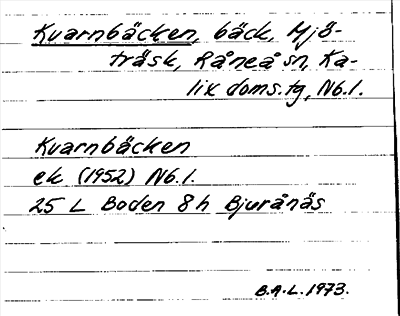 Kvarnbäcken, bäck, Mjö-
träsk, Råneå sn, Ka-
lix doms.tg, Nb.l.
Kvarnbäcken
ek (1952) Nb.l.
25 L Boden 8h Bjurånäs
B.A.L. 1973.